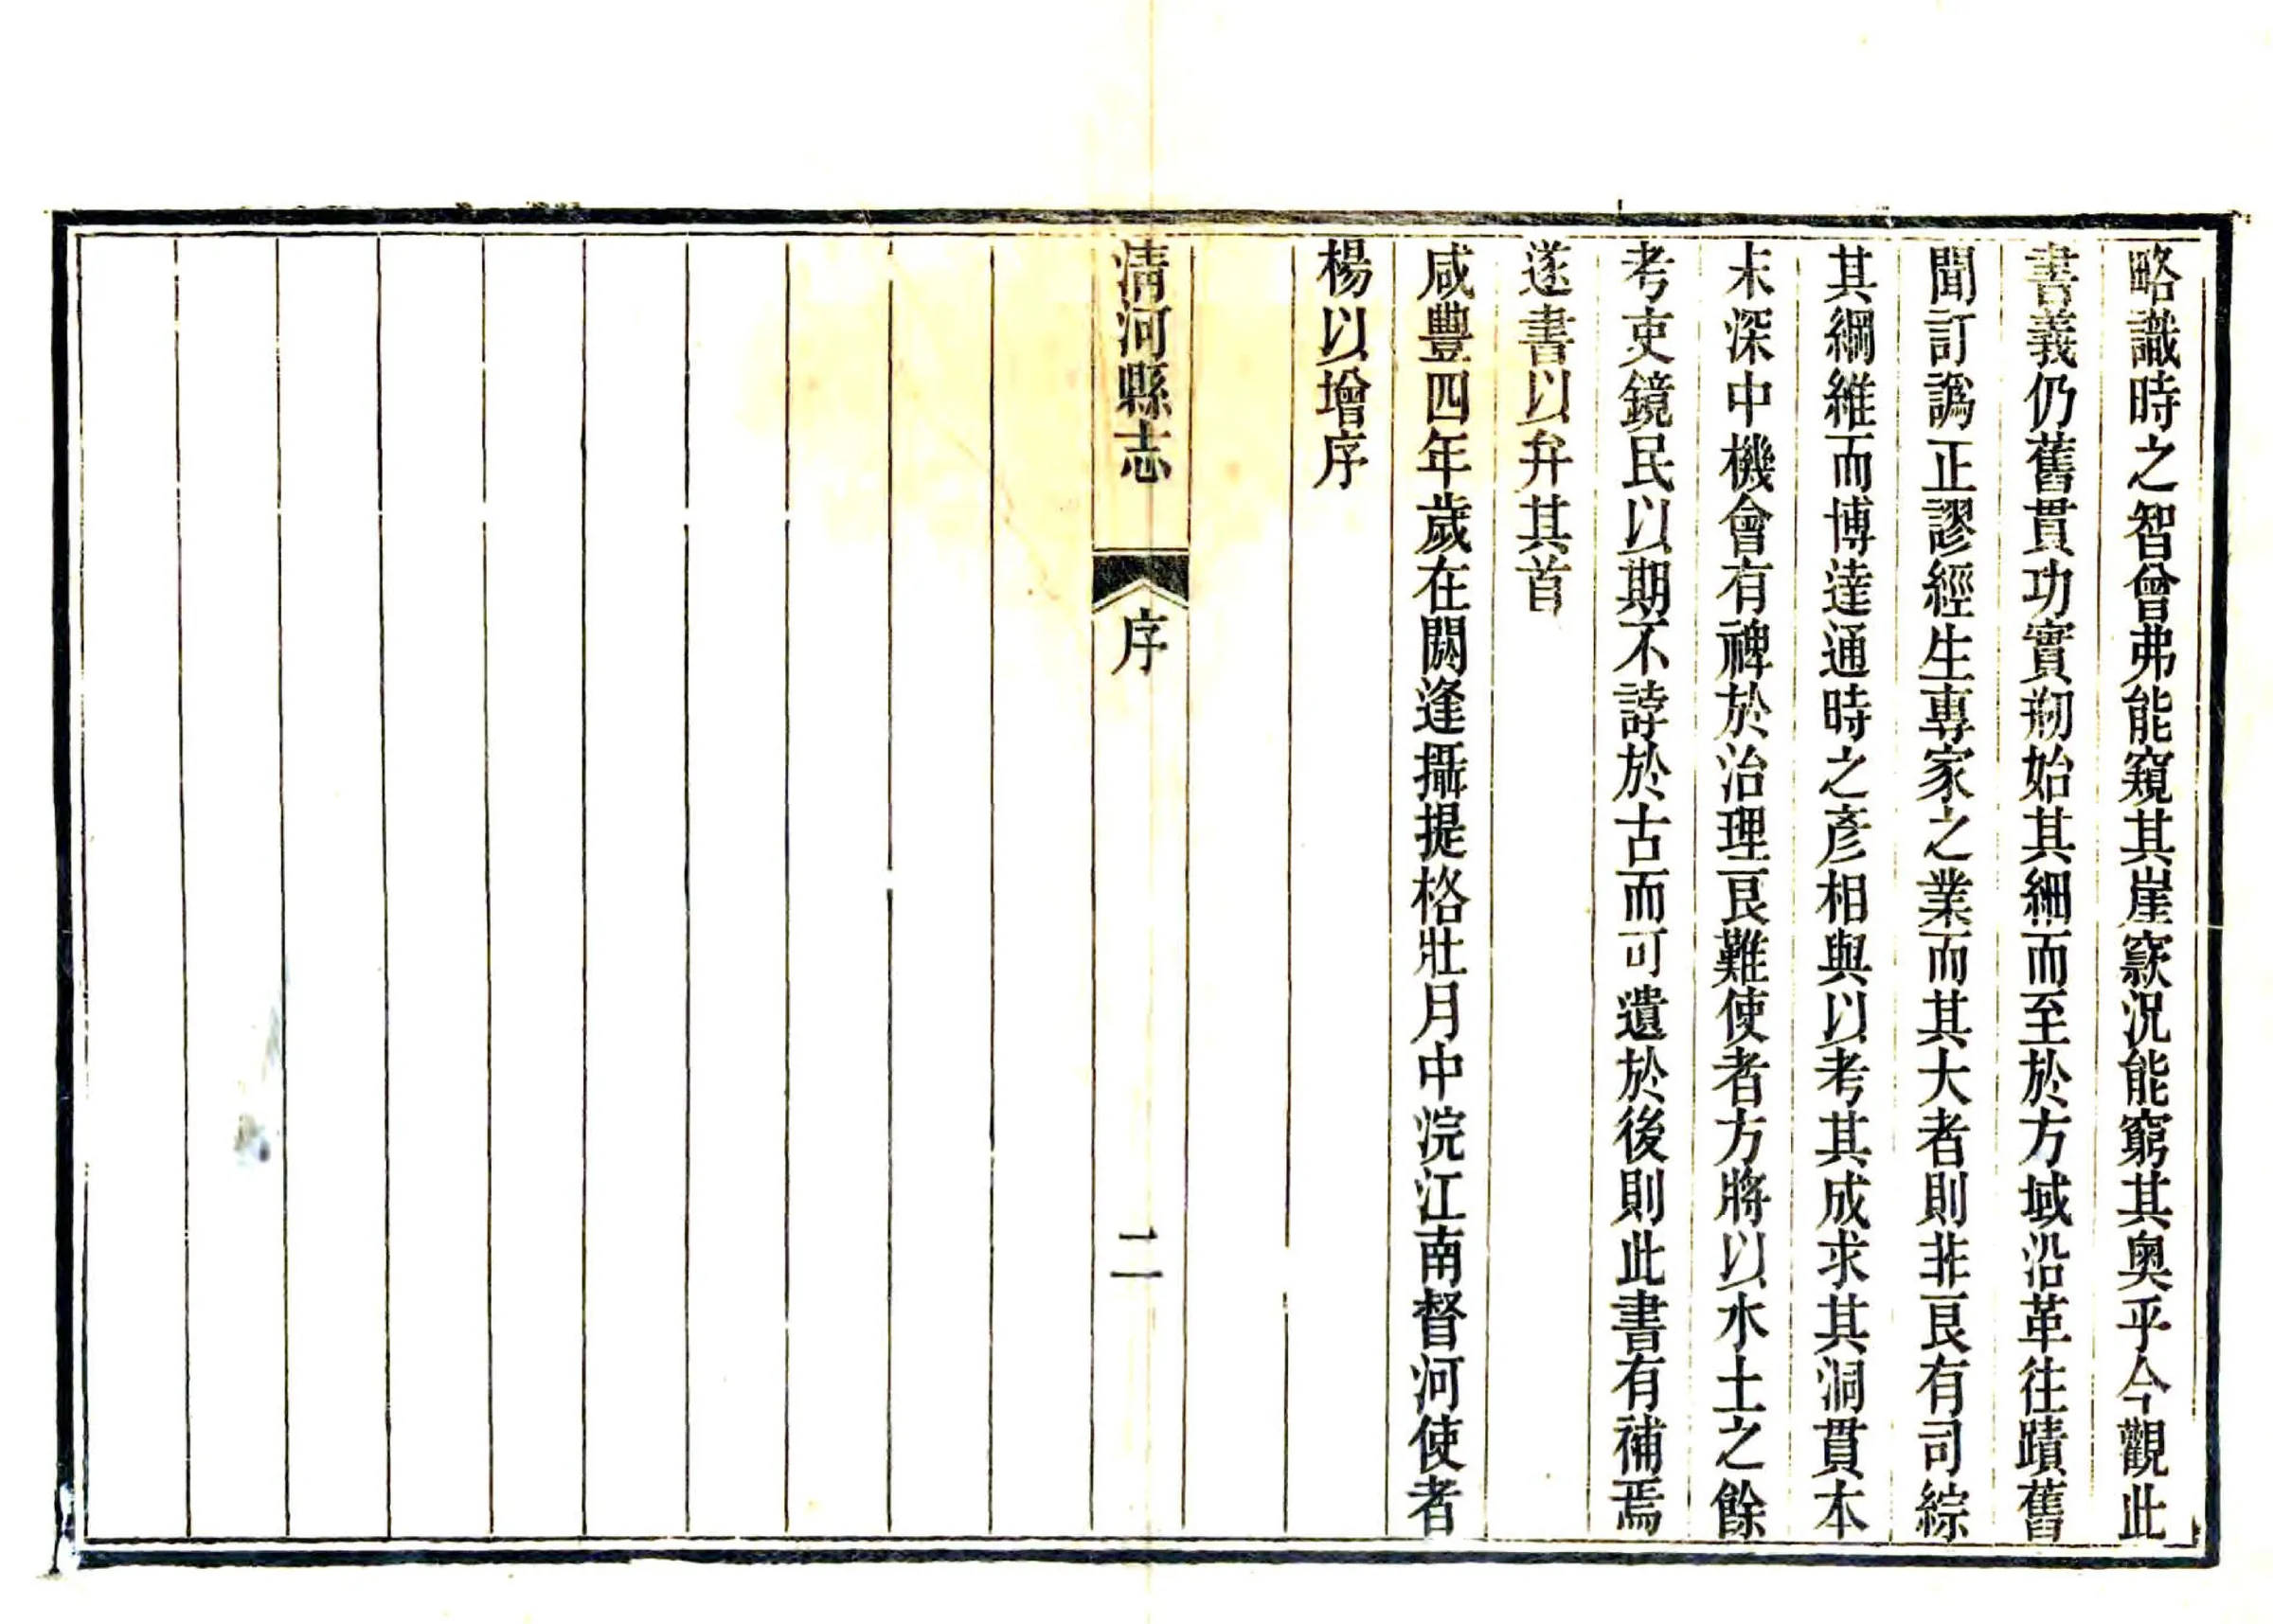 略識時之智曾弗能窺其崖窾況能窮其奧乎今觀此
書義仍舊貫功實刱始其細而至於方域沿革往蹟舊
聞訂譌正謬經生專家之業而其大者則非良有司綜
其綱維而博達通時之彥相與以考其成求其洞貫本
末深中機會有裨於治理良難使者方將以水土之餘
考吏鏡民以期不誖於古而可遺於後則此書有補焉
遂書以弁其首
咸豐四年歲在閼逢攝提格壯月中浣江南督河使者
楊以增序
清河縣志
序
二